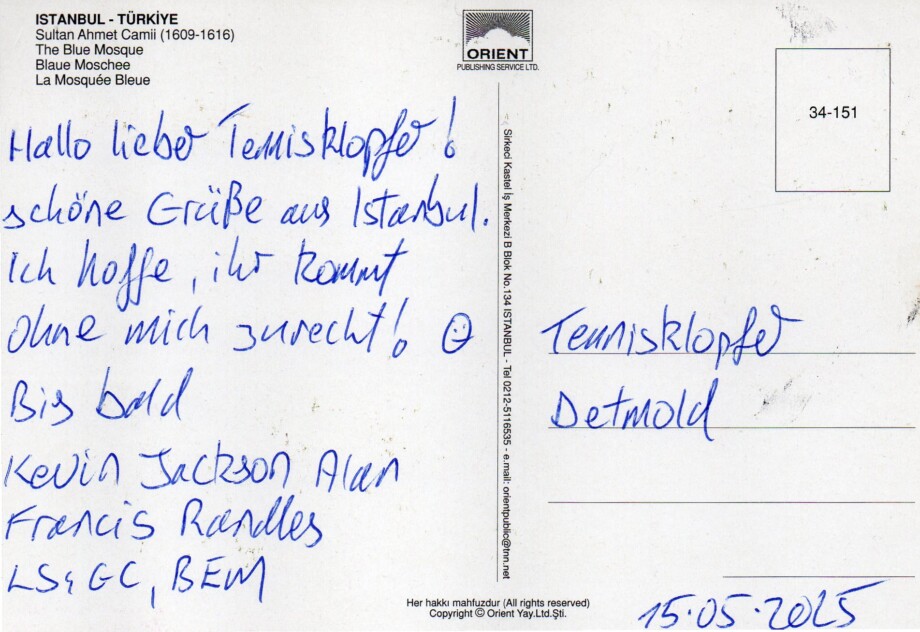 ISTANBUL - TÜRKİYE
Sultan Ahmet Camii (1609-1616)
The Blue Mosque
Blaue Moschee
La Mosquée Bleue
ORIENT
PUBLISHING SERVICE LTD.
34-151
Hallo lieber Tennisklopfer!
schöne Grüße aus Istanbul.
Ich hoffe, ihr kommt
ohne mich zurecht! ☺
Bis bald
Kevin Jackson Alan
Francis Randles
LS&GC, BEM
Sirkeci Kastel İş Merkezi B Blok No.134 ISTANBUL - Tel 0212-5116535 - e.mail: orientpublio@tnn.net
Tennisklopfer
Detmold
Her hakkı mahfuzdur (All rights reserved)
Copyright © Orient Yay.Ltd.Şti.
15.05.2025